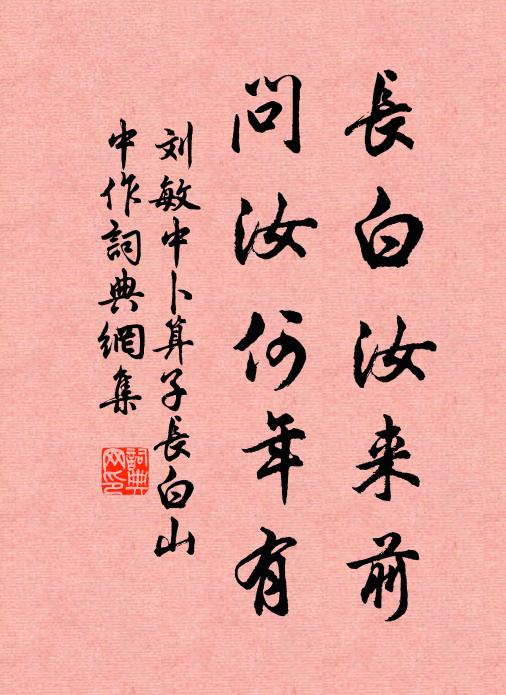 長白汝来前
問汝何年有
刘敏中卜算子長白山
中作詞典網集
詞典网印